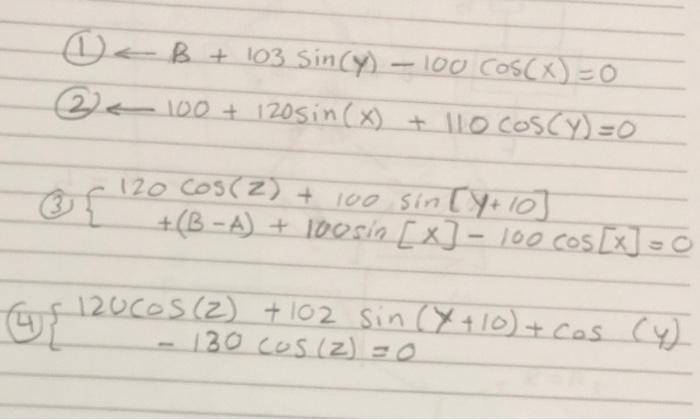 ① ← B + 103 sin(y) - 100 cos(x) = 0
② ← 100 + 120 sin(x) + 110 cos(y) = 0
③ { 120 cos(z) + 100 sin[y+10]
+(B-A) + 100 sin[x] - 100 cos[x] = 0
④ { 120 cos(z) + 102 sin(y+10) + cos(y)
- 130 cos(z) = 0